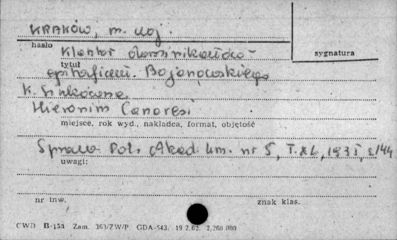 KRAKÓW, m. woj.
hasło
Klasztor dominikanów -
sygnatura
tytuł
epitafium Bojanowskiego
K. Sinkówna
Hieronim Canavesi
miejsce, rok wyd., nakładca, format, objętość
Spraw. Pol. Akad. Um. nr 5, T. XL, 1935, s. 144
uwagi:
nr inw.
znak klas.
CWD B-154 Zam. 363/7 W/P GDA-543. 19.2.62. 2,200 000